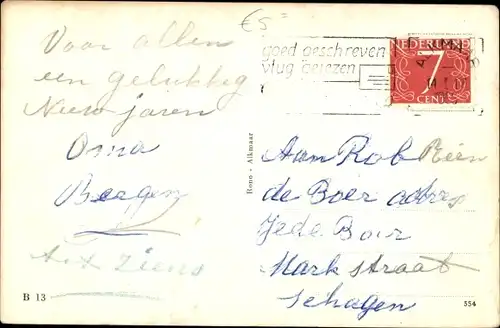 €5=
Voor allen
een gelukkig
Nieuwjaren
Oma
Bergen
tot ziens
B 13
Rono - Alkmaar
goed geschreven
vlug gelezen
NEDERLAND
7
CENT
Aan Rob Rien
de Boer adres
Jede Boer
Mark straat
Schagen
554